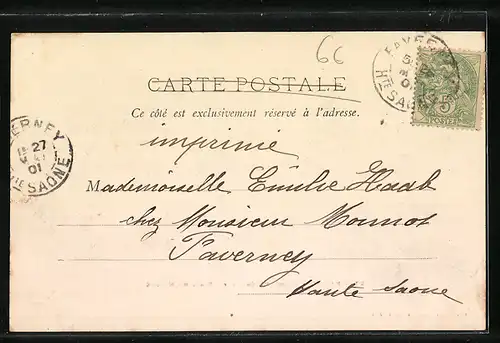 6c
CARTE POSTALE
Ce côté est exclusivement réservé à l'adresse.
imprimé
Mademoiselle Emilie Haab
chez Monsieur Monnot
Faverney
Haute Saone
ERNEY
27
01
Hte SAONE
FAVER
5
01
Hte SAONE
5
POSTES